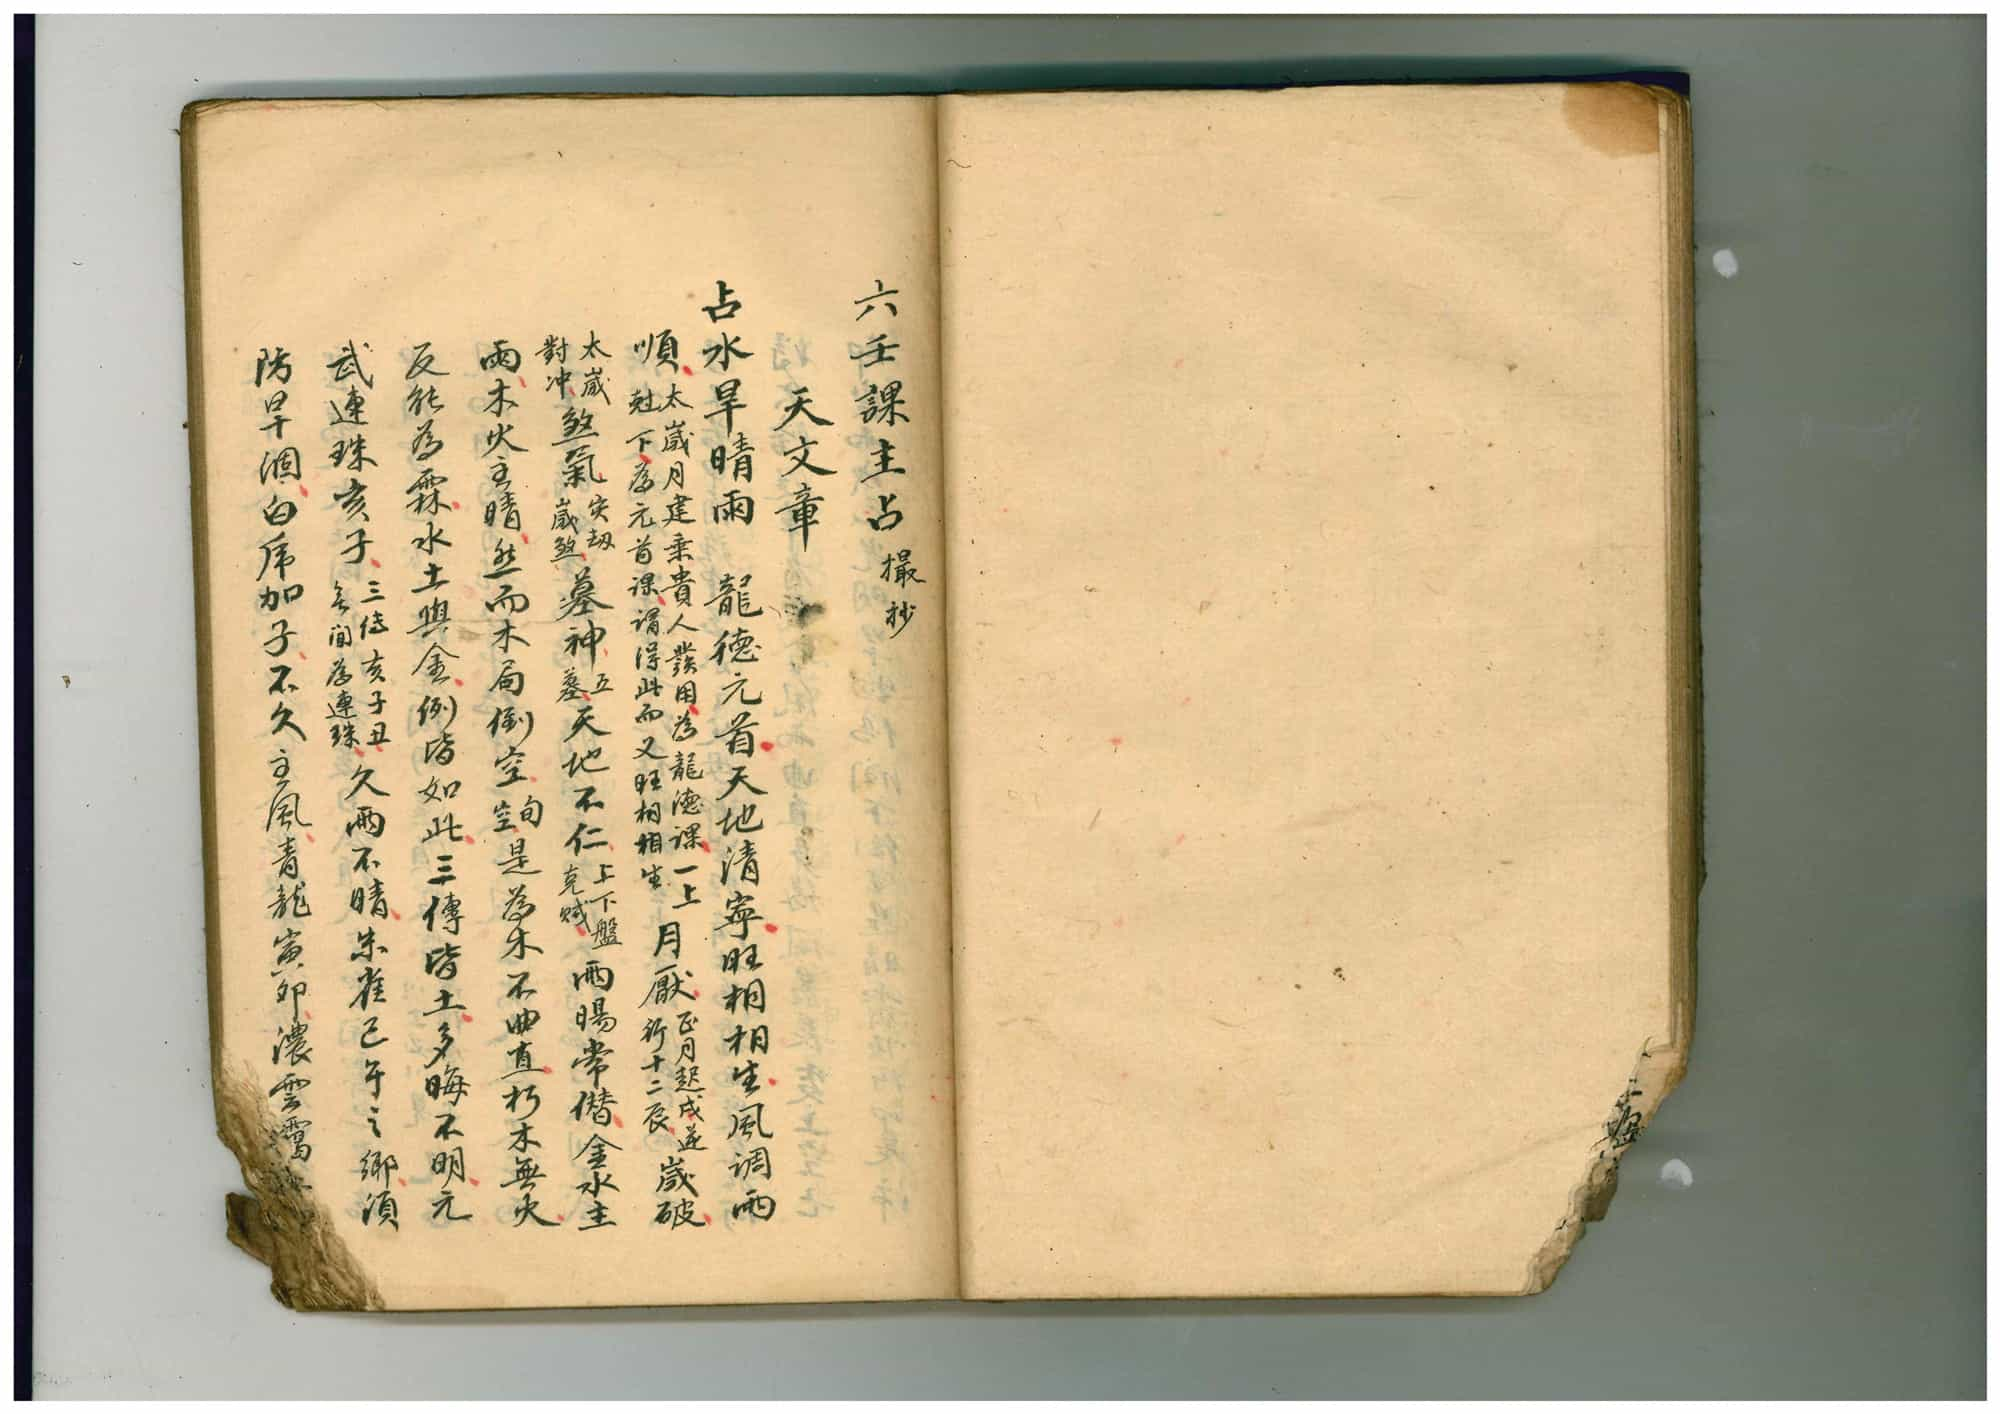 六壬課主占 撮抄
天文章
占水旱晴雨 龍德元首天地清寧旺相相生風調雨
順 太歲月建乘貴人發用為龍德課一上
尅下為元首課謂得此而又旺相相生 月厭 正月起戌逆
行十二辰 歲破
太歲
對冲 煞氣 灾劫
歲煞 墓神 五
墓 天地不仁 上下盤
克賊 雨暘常僭金水主
雨木火主晴然而木局倒空 旬
空 是為木不曲直朽木無火
反能為霖水土與金例皆如此三傳皆土多晦不明元
武連珠亥子 三傳亥子丑
無間為連珠 久雨不晴朱雀巳午之鄉須
防旱涸白虎加子不久主風青龍寅卯濃雲靄